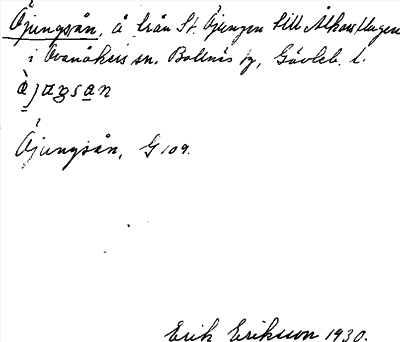 Öjungsån, å från St. Öjungen till Älkarslugen
i Ovanåkers sn. Bollnäs tg, Gävleb. l.
Öjungsån, G 109.
Erik Eriksson 1930.